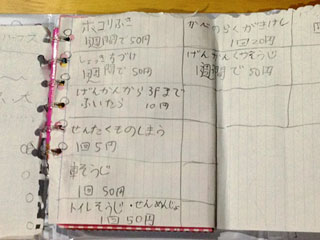 ホコリふき
1週間で50円
しょっきかたづけ
1週間で50円
げんかんから3Fまで
ふいたら 10円
せんたくものしまう
1回5円
車そうじ
1回 50円
トイレそうじ・せんめんじょ
1回50円
かべのらくがきけし
1回20円
げんかんくつそうじ
1週間で50円